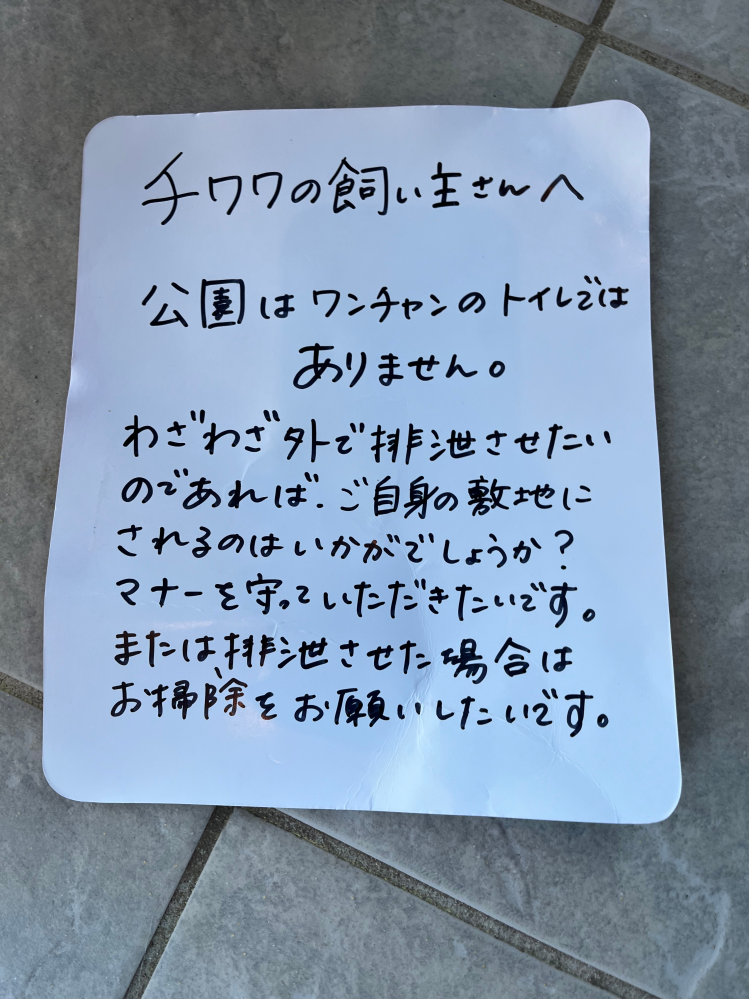 チワワの飼い主さんへ
公園はワンチャンのトイレでは
ありません。
わざわざ外で排泄させたい
のであれば、ご自身の敷地に
されるのはいかがでしょうか?
マナーを守っていただきたいです。
または、排泄させた場合は
お掃除をお願いしたいです。